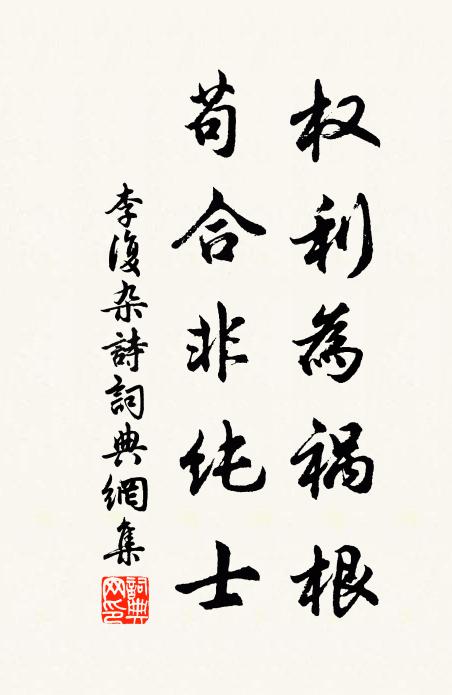 权利為祸根
苟合非纯士
李復杂詩詞典網集
詞典网印